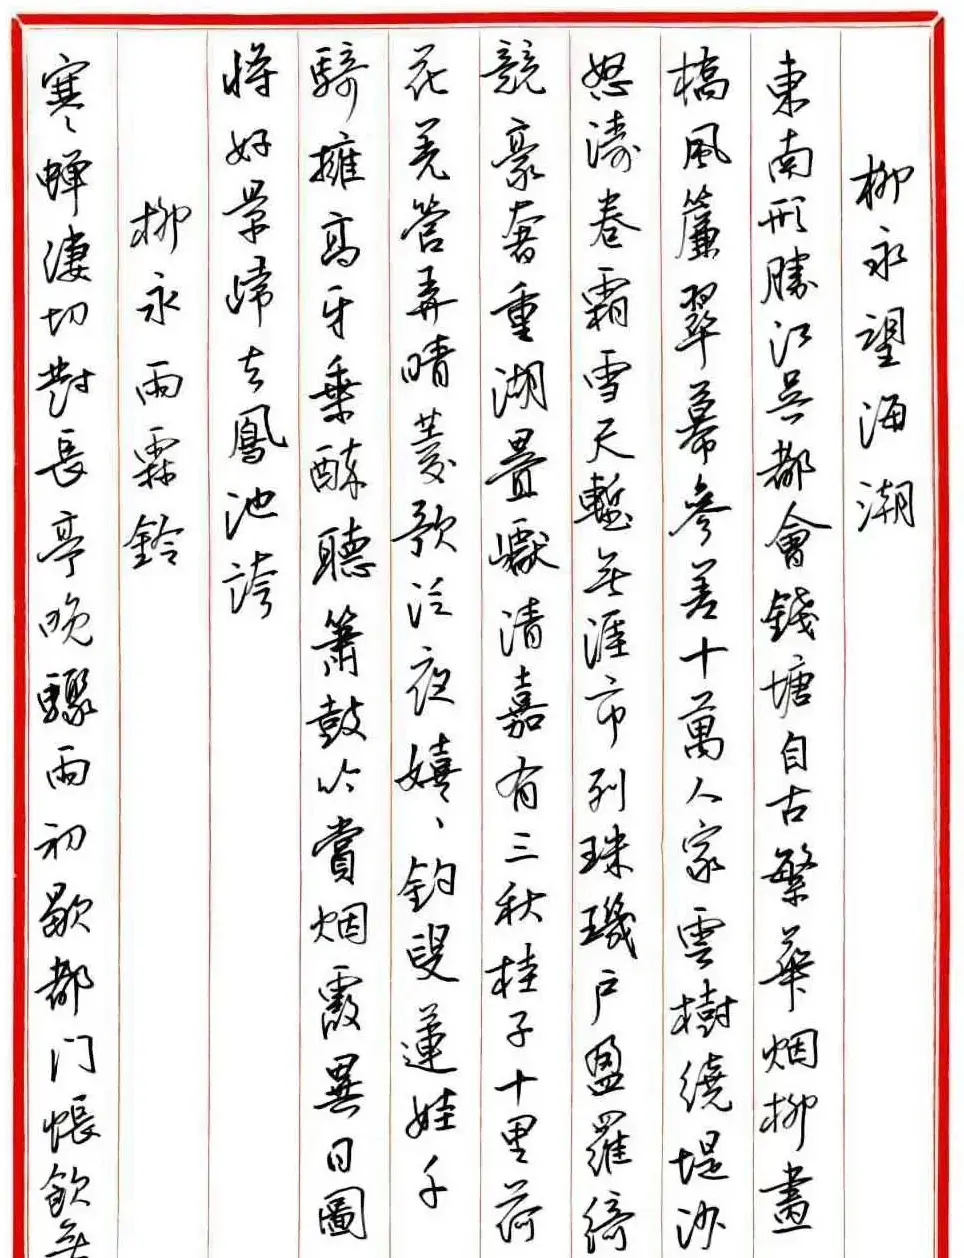 柳永望海潮
東南形勝江吳都會錢塘自古繁華烟柳畫
橋風簾翠幕參差十萬人家雲樹繞堤沙
怒濤卷霜雪天塹無涯市列珠璣戶盈羅綺
競豪奢重湖疊巘清嘉有三秋桂子十里荷
花羌管弄晴菱歌泛夜嬉、釣叟蓮娃千
騎擁高牙乘醉聽簫鼓吟賞烟霞異日圖
將好景歸去鳳池誇
柳永雨霖鈴
寒蟬淒切對長亭晚驟雨初歇都門帳飲無